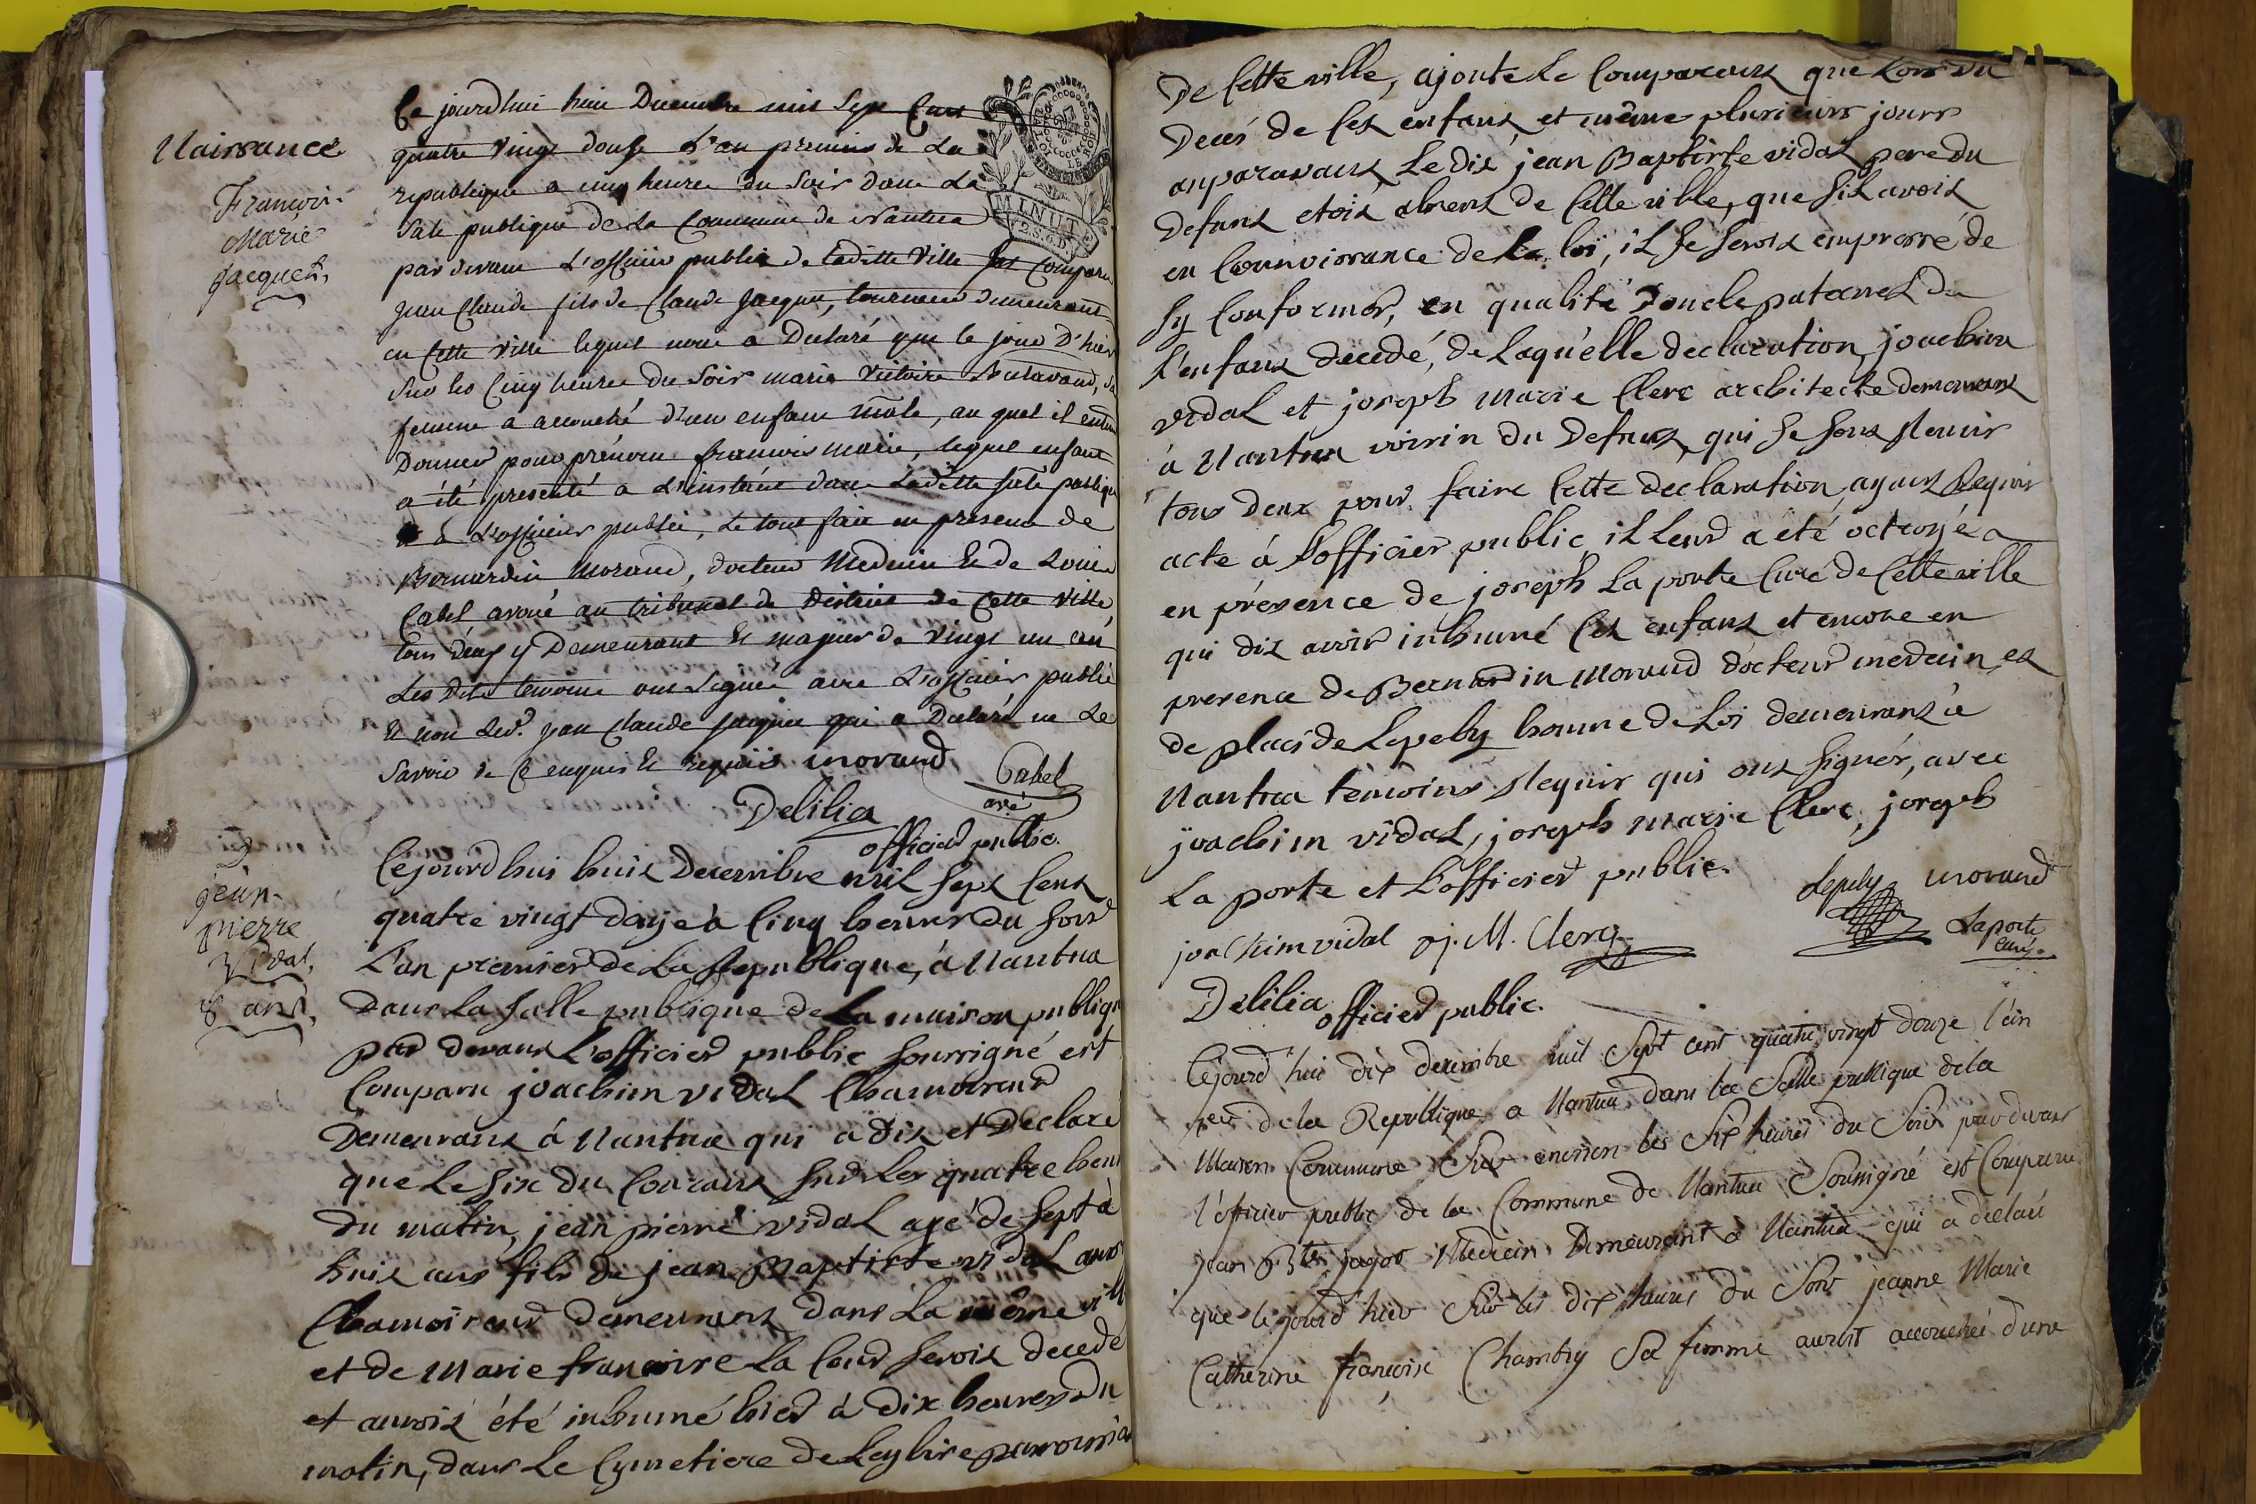 Naissance
François
Marie
Jacquet
Ce jourdhui huit Decembre mil Sept Cent
quatre vingt douse L'an premier de La
republique a cinq heures du Soir dans La
Sale publique de La Commune de Nantua
par devant L'officier public de Ladite Ville est Comparu
Jean Claude fils de Claude Jacquet, tourneur demeurant
en Cette Ville lequel nous a Declaré que le jour D'hier
Sur les Cinq heures du Soir marie Victoire sa
femme a accouché d'un enfant mâle, au quel il entend
Donner pour prénom francois marie, lequel enfant
a été presenté a L'instant dans Ladite sale publique
a L'officier public, Le tout fait en presence de
Bernardin Morand, docteur Medecin & de Louis
Cabel avoué au tribunal de District de Cette Ville
tous deux y Demeurant & majeurs de vingt un an
Les dits temoins ont Signés avec L'officier public
& non Led. Jean Claude Jacquet qui a Declaré ne Le
Savoir de Ce enquis & requis morand
Cabel
avé
Delilia
officier public.
D
jean-
pierre
Vidal,
8 ans,
Cejourdhui huit Decembre mil Sept Cent
quatre vingt douze à Cinq heures du Soir
L'an premier de La Republique, à Nantua
Dans La Salle publique de La maison publique
par devant L'officier public Soussigné est
Comparu joachim vidal Chamoiseur
Demeurant à Nantua qui a dit et Déclaré
que Le Six du Courant Sur Les quatre heures
du matin, jean pierre vidal agé de Sept à
huit ans fils de jean Baptiste vidal aussi
Chamoiseur demeurant dans La même ville
et de Marie françoise La Cour Seroit decedé
et auroit été inhumé hier à dix heures du
matin, dans Le Cymetiere de Leglise parroissiale
De Cette ville, ajoute Le Comparant que Lors du
Decés de Cet enfant et même plusieurs jours
auparavant Le dit jean Baptiste vidal pere du
Defunt etoit absent de Cette ville, que Sil avoit
eu Connoissance de La loi, il Se Seroit empressé de
Sy Conformer, en qualité d'oncle paternel du
L'enfant decedé, de Laquelle declaration joachim
vidal et joseph Marie Clerc architecte demeurant
à Nantua voisin du Defunt, qui Se Sont Reunis
tous deux pour faire Cette déclaration, ayant Requis
acte à L'officier public, il Leur a été octroyé
en présence de joseph La porte Curé de Cette ville
qui dit avoir inhumé Cet enfant et encore en
presence de Bernardin Morand docteur medecin et
de placide Lepely homme de Loi demeurant à
Nantua témoins Requis qui ont Signés, avec
joachim vidal, joseph Marie Clerc, joseph
La porte et L'officier public.
Lepely morand
joachim vidal j. M. Clerc
Laporte
curé.
Delilia officier public.
Cejourd'hui dix decembre mil Sept cent quatre vingt douze l'an
1er de la Republique a Nantua dans la Salle publique de la
Maison Commune Sur environ les Six heures du Soir par devant
l'officier public de la Commune de Nantua Soussigné est Comparu
jean Bte jagot Medecin Demeurant à Nantua qui a declaré
que le jourd'hier Sur les dix heures du Soir jeanne Marie
Catherine françoise Chambry Sa femme auroit accouchée d'une